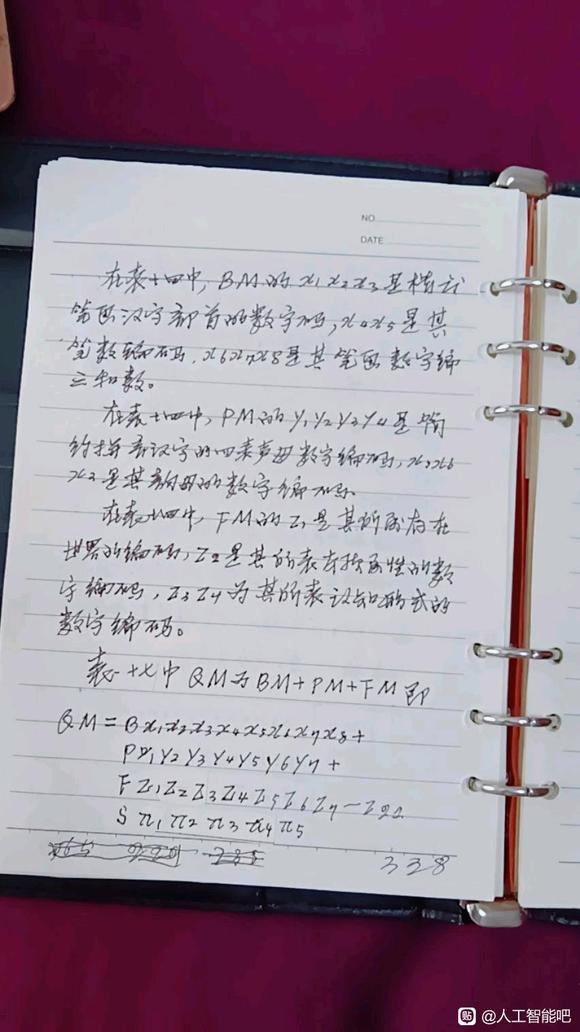 NO
DATE
在表十四中，BM的x1x2x3是横式
笔画汉字部首的数字码，x4x5是其
笔数编码，x6x7x8是其笔画数字编
码和数。
在表十四中，PM的Y1Y2Y3Y4是
汉字的四表声母数字编码，
x7是其韵母的数字编码。
在表十四中，FM的Z1是其所属存在
世界的编码，Z2是其所表述属性的数
字编码，Z3Z4为其所表认知形式的
数字编码。
表十七中QM为BM+PM+FM即
QM=Bx1x2x3x4x5x6x7x8+
PY1Y2Y3Y4Y5Y6Y7+
FZ1Z2Z3Z4Z5Z6Z7—Z22
Sπ1π2π3π4π5
338
@人工智能吧